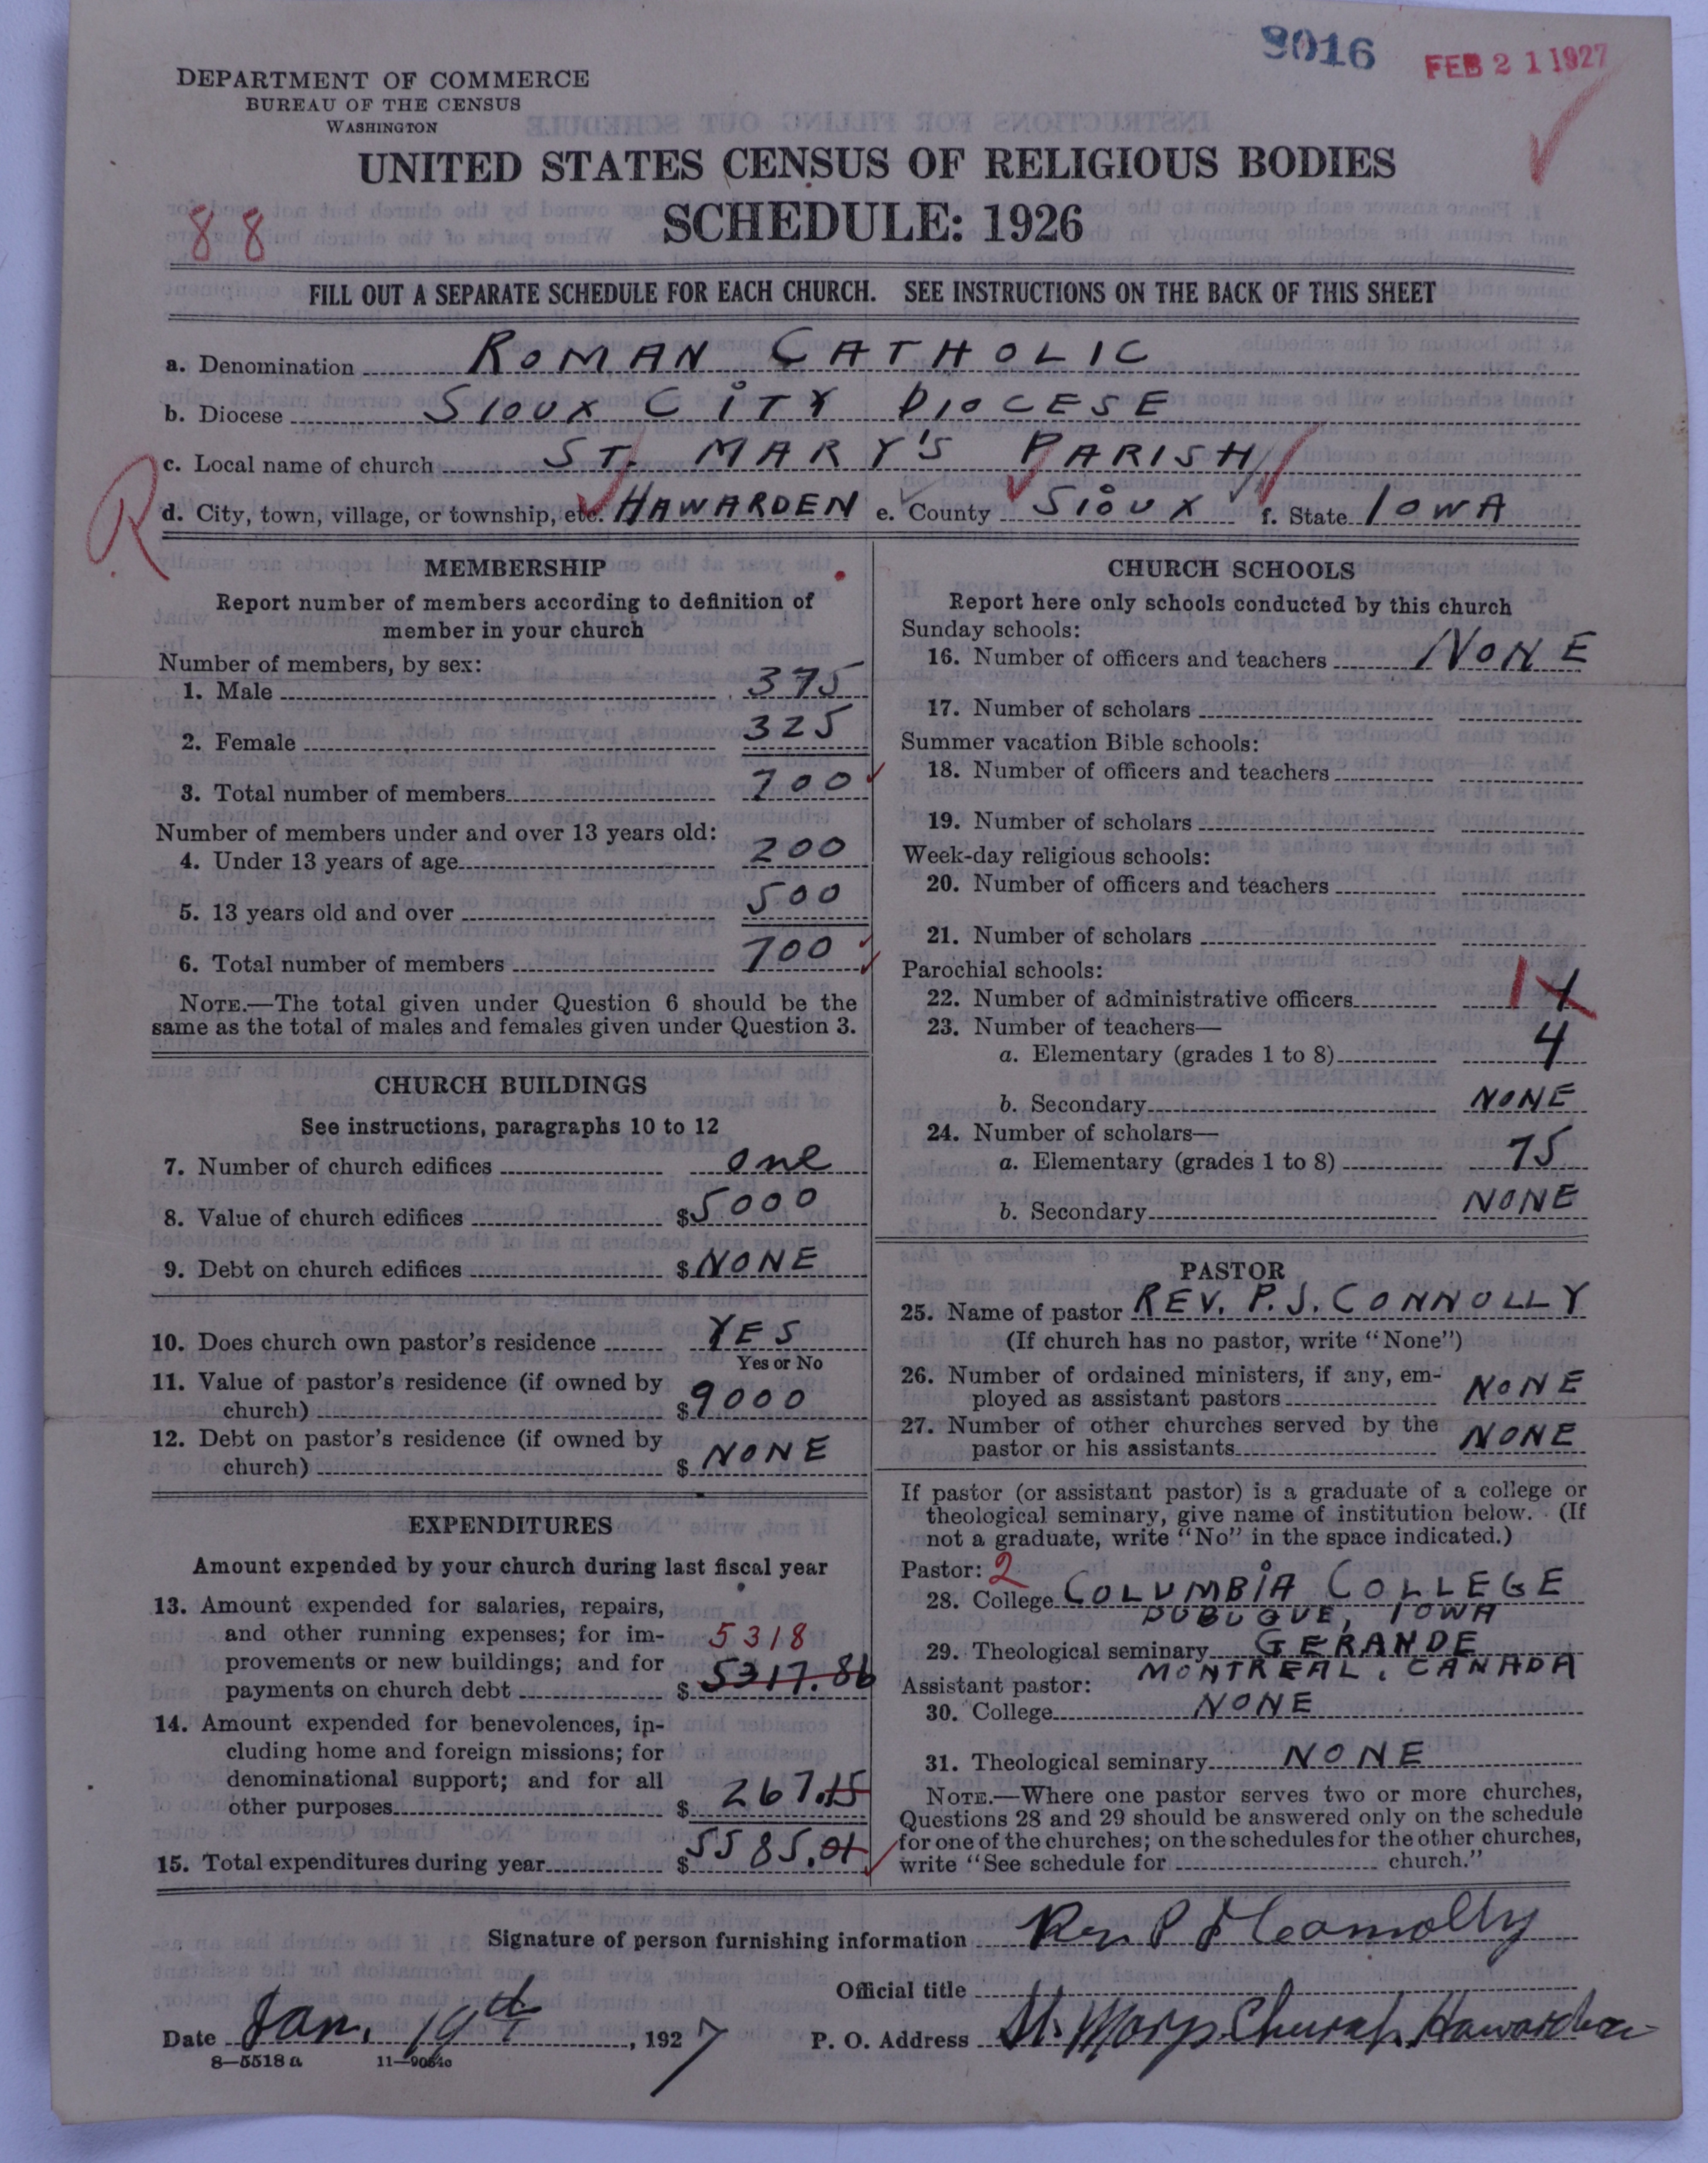 9016 FEB 21 1927
DEPARTMENT OF COMMERCE
BUREAU OF THE CENSUS
WASHINGTON
UNITED STATES CENSUS OF RELIGIOUS BODIES
88
SCHEDULE: 1926
FILL OUT A SEPARATE SCHEDULE FOR EACH CHURCH. SEE INSTRUCTIONS ON THE BACK OF THIS SHEET
a. Denomination ROMAN CATHOLIC
b. Diocese SIOUX CITY DIOCESE
c. Local name of church ST. MARY'S PARISH
R
d. City, town, village, or township, etc. HAWARDEN e. County SIOUX f. State IOWA
MEMBERSHIP
Report number of members according to definition of
member in your church
Number of members, by sex:
1. Male 375
2. Female 325
3. Total number of members 700
Number of members under and over 13 years old:
4. Under 13 years of age 200
5. 13 years old and over 500
6. Total number of members 700
NOTE.—The total given under Question 6 should be the
same as the total of males and females given under Question 3.
CHURCH BUILDINGS
See instructions, paragraphs 10 to 12
7. Number of church edifices one
8. Value of church edifices $5000
9. Debt on church edifices $NONE
10. Does church own pastor's residence YES
Yes or No
11. Value of pastor's residence (if owned by
church) $9000
12. Debt on pastor's residence (if owned by
church) $ NONE
EXPENDITURES
Amount expended by your church during last fiscal year
13. Amount expended for salaries, repairs,
and other running expenses; for im- 5318
provements or new buildings; and for
payments on church debt $ 5317.86
14. Amount expended for benevolences, in-
cluding home and foreign missions; for
denominational support; and for all
other purposes $ 267.15
15. Total expenditures during year $5585.01
CHURCH SCHOOLS
Report here only schools conducted by this church
Sunday schools:
16. Number of officers and teachers NONE
17. Number of scholars
Summer vacation Bible schools:
18. Number of officers and teachers
19. Number of scholars
Week-day religious schools:
20. Number of officers and teachers
21. Number of scholars
Parochial schools:
22. Number of administrative officers 1
23. Number of teachers—
a. Elementary (grades 1 to 8) 4
b. Secondary NONE
24. Number of scholars—
a. Elementary (grades 1 to 8) 75
b. Secondary NONE
PASTOR
25. Name of pastor REV. P.J. CONNOLLY
(If church has no pastor, write "None")
26. Number of ordained ministers, if any, em-
ployed as assistant pastors NONE
27. Number of other churches served by the
pastor or his assistants NONE
If pastor (or assistant pastor) is a graduate of a college or
theological seminary, give name of institution below. (If
not a graduate, write "No" in the space indicated.)
Pastor: 2
28. College COLUMBIA COLLEGE
DUBUQUE, IOWA
29. Theological seminary GERANDE
MONTREAL, CANADA
Assistant pastor:
30. College NONE
31. Theological seminary NONE
NOTE.—Where one pastor serves two or more churches,
Questions 28 and 29 should be answered only on the schedule
for one of the churches; on the schedules for the other churches,
write "See schedule for church."
Signature of person furnishing information Rev. P J Connolly
Official title
Date Jan. 19th, 1927 P. O. Address St. Marys Church, Hawarden
8—5518a 11—9054o